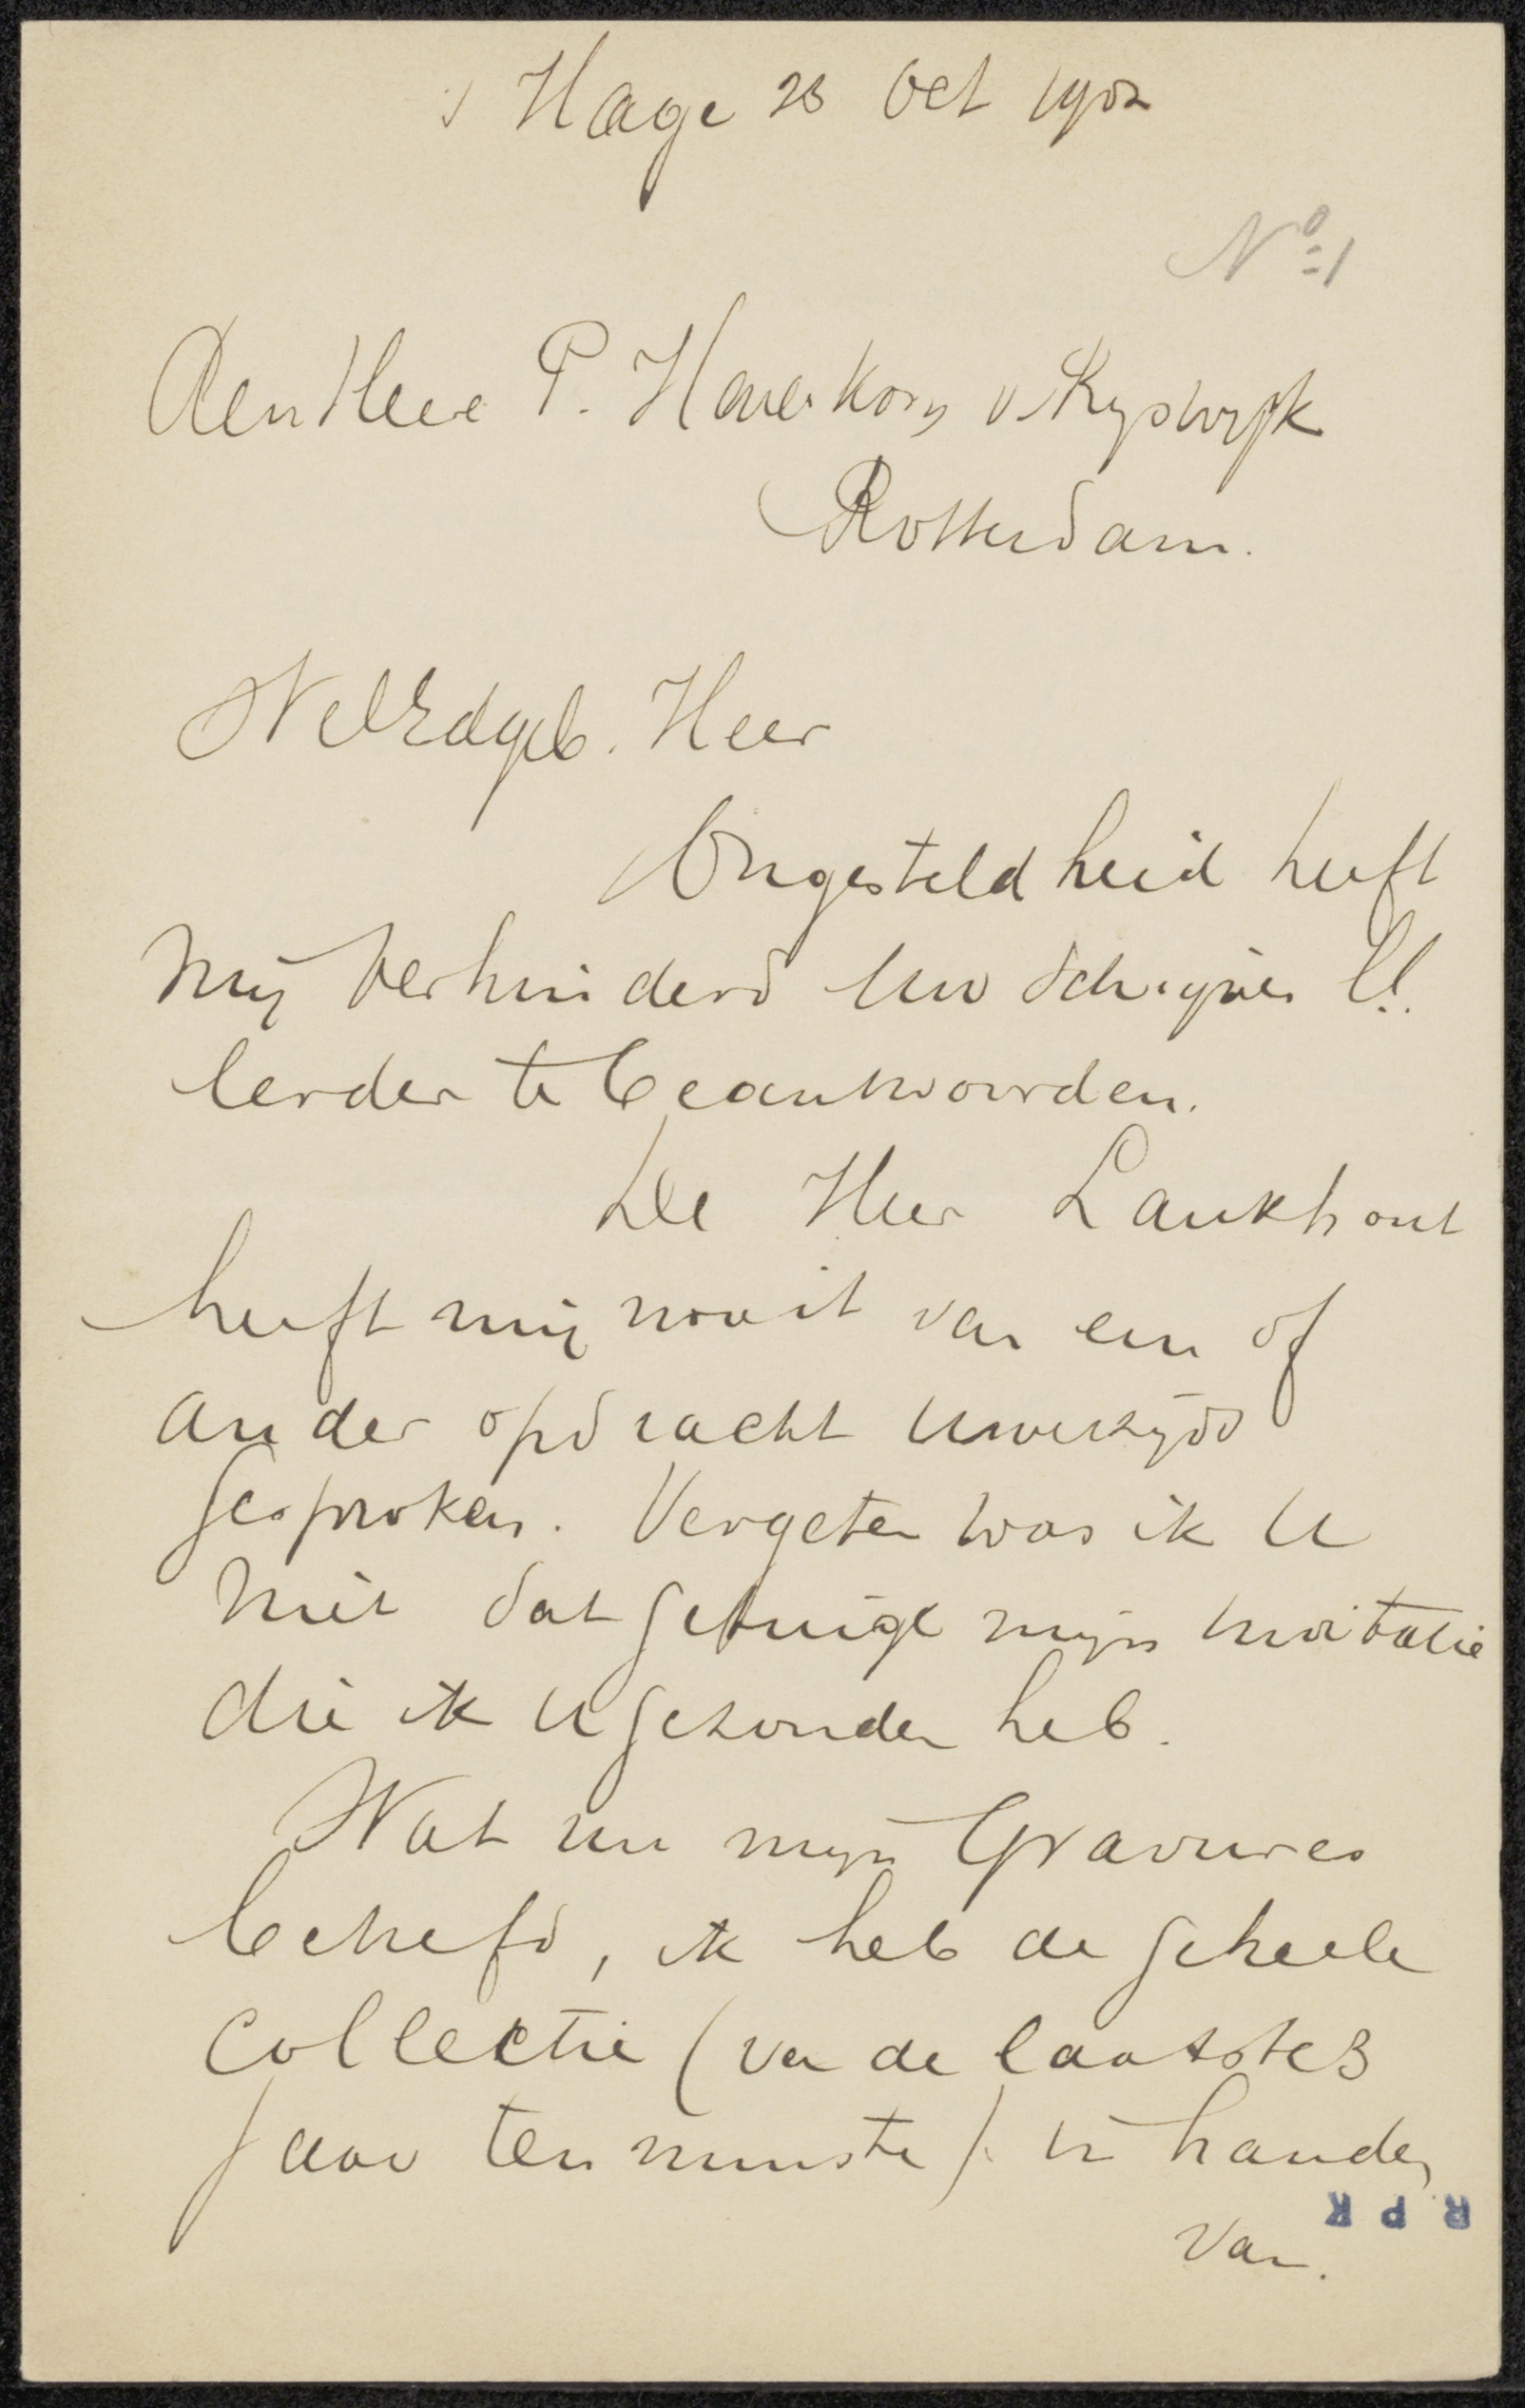 's Hage 23 Oct 1902
No 1
Den Heer P. Haverkorn v Rijswijk
Rotterdam.
WelEdgeb. Heer
Ongesteldheid heeft
mij verhinderd Uw schrijven ll.
eerder te beantwoorden.
De Heer Lankhout
heeft mij nooit van een of
ander opdracht Uwerzijds
gesproken. Vergeten was ik U
niet dat getuige mijn invitatie
die ik U gezonden heb.
Wat nu mijn Gravures
betreft, ik heb de geheele
collectie (van de laatste 3
jaar ten minste) in handen
van.
R P K